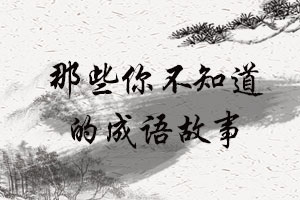 那些你不知道
的成语故事